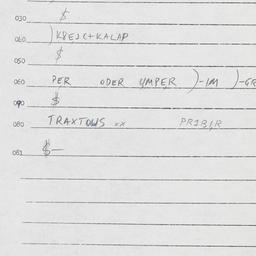 030 $
040 )KREJC+KALAP
050 $
060 PER ODER UMPER )-IM )-GR
070 $
080 TRAXTOWS xx PRIBIR
081 $—